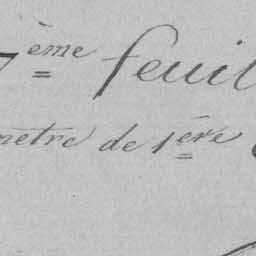 7ème feuil
metre de 1ère